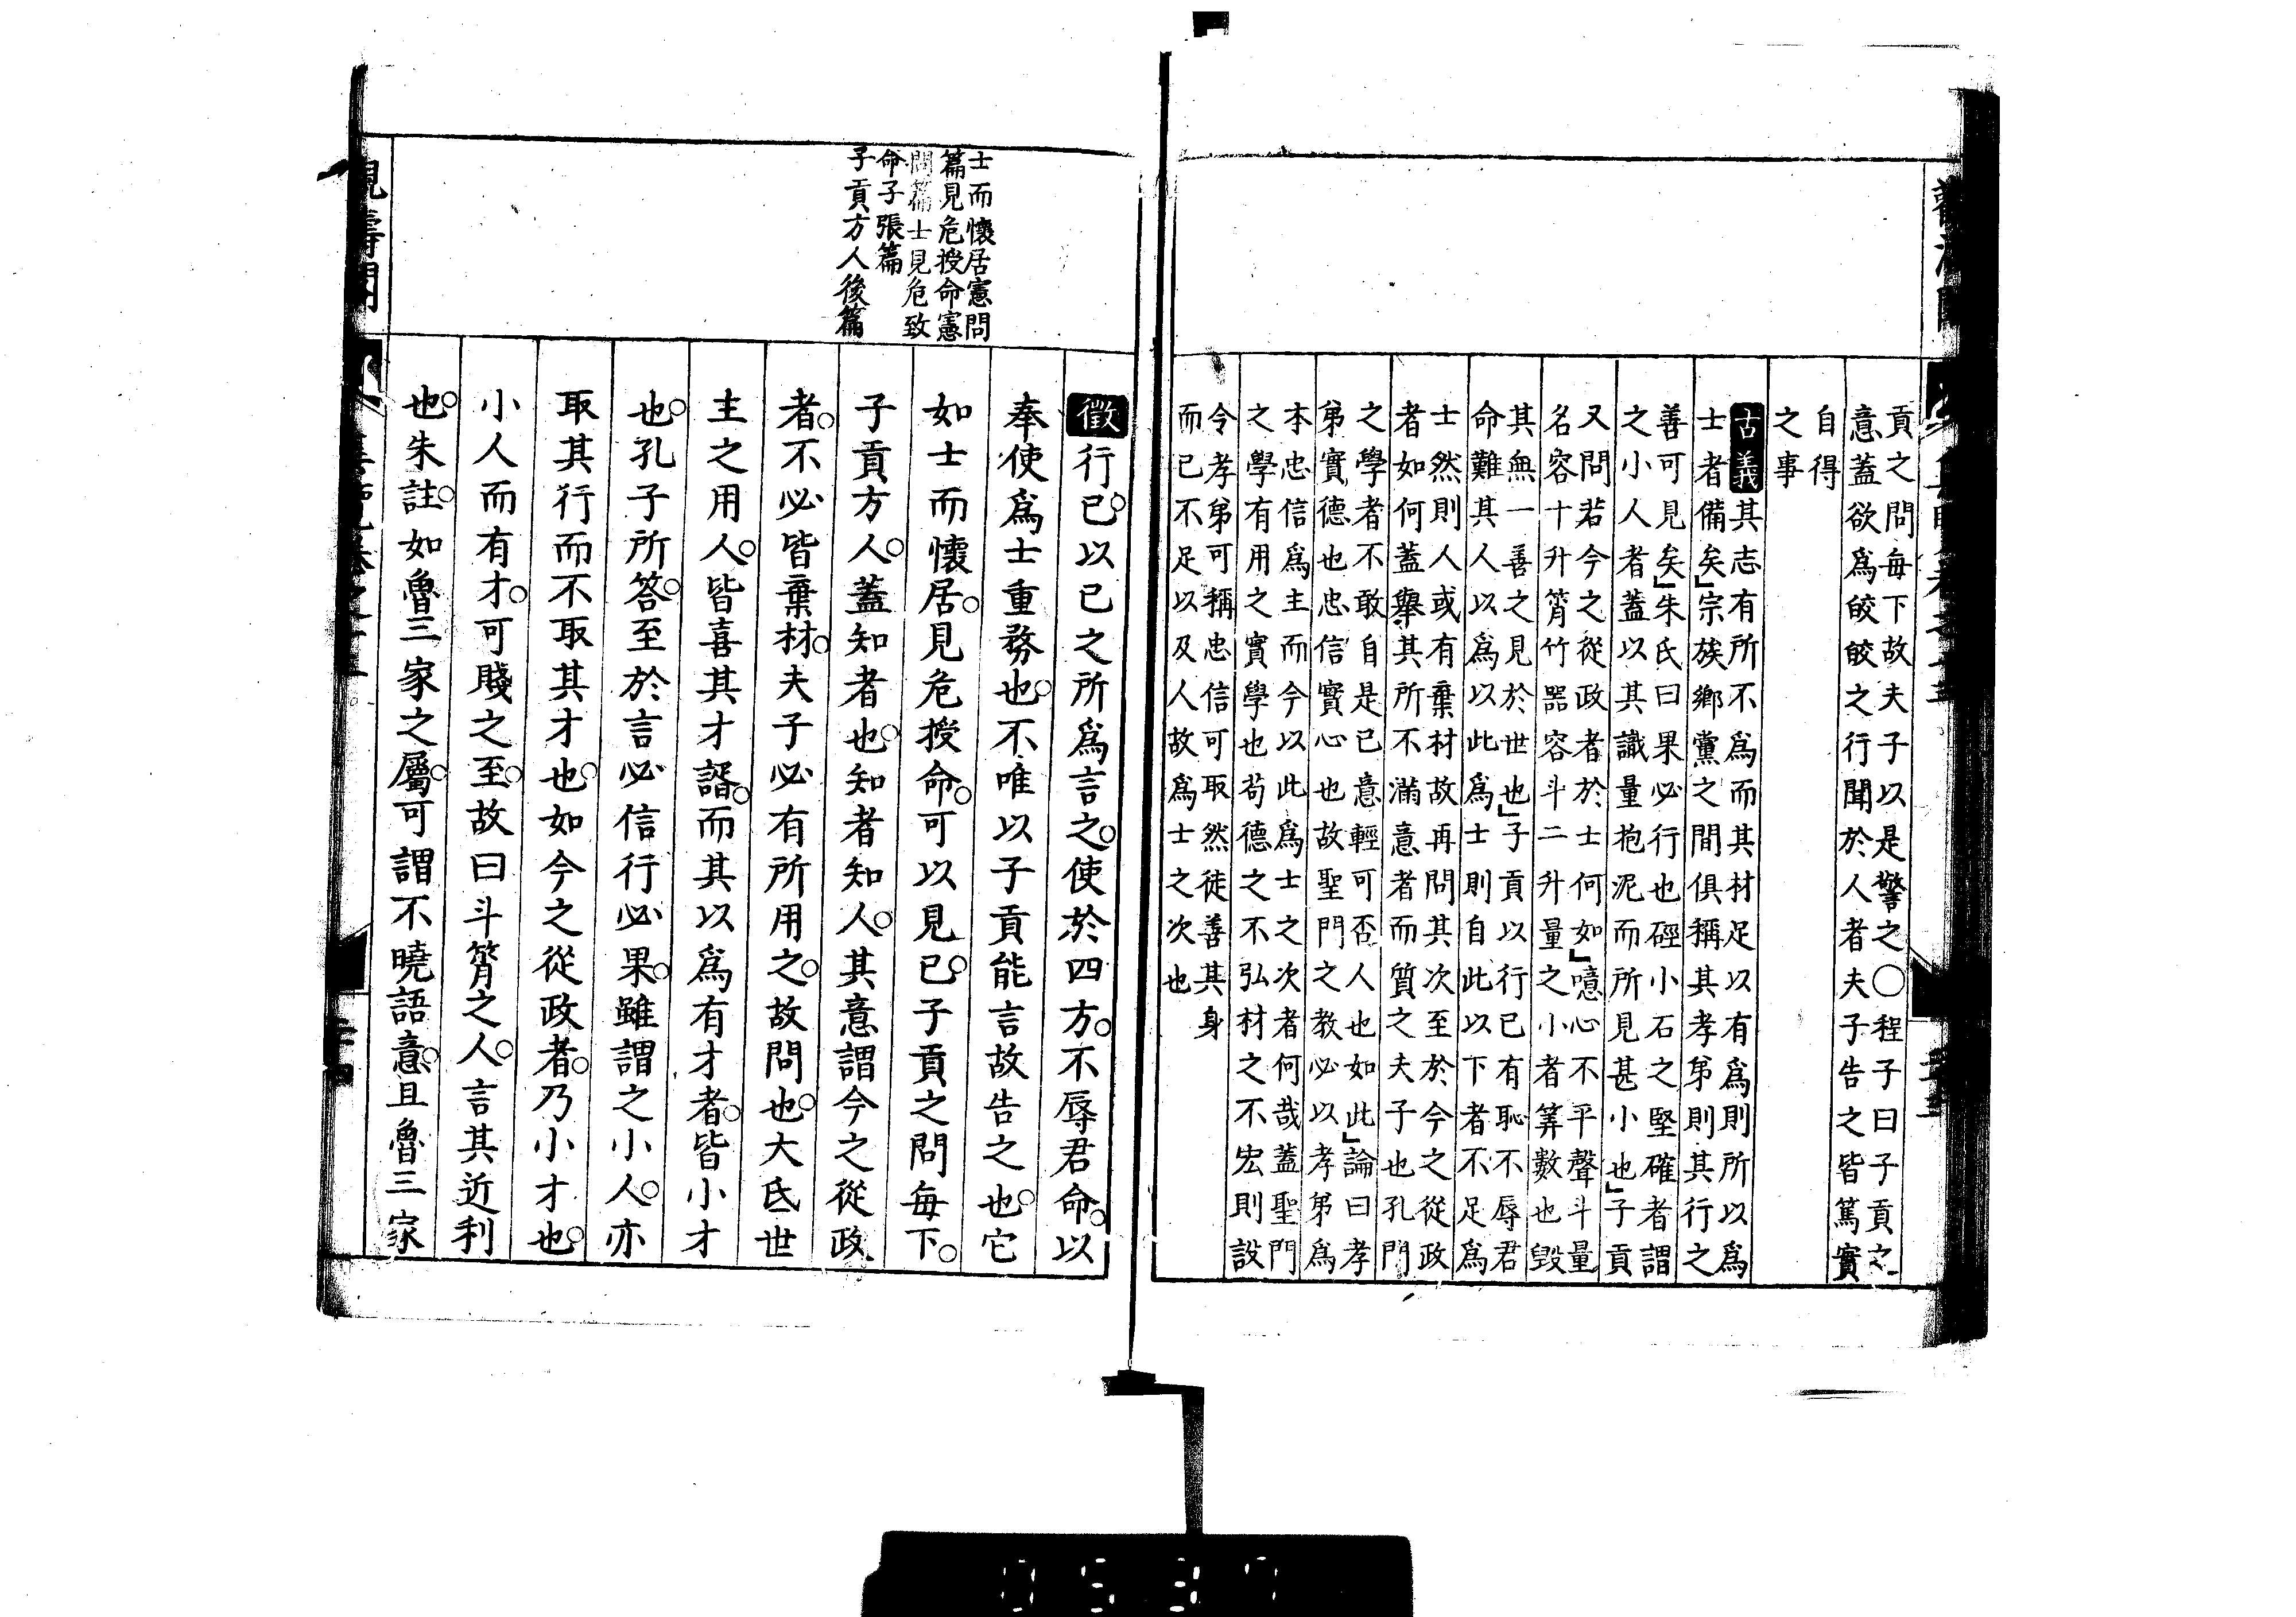 貢之問每下故夫子以是警之〇程子曰子貢之
意蓋欲爲皎皎之行聞於人者夫子告之皆篤實
自得
之事
古義其志有所不爲而其材足以有爲則所以爲
士者備矣」宗族鄉黨之間俱稱其孝弟則其行之
善可見矣」朱氏曰果必行也硜小石之堅確者謂
之小人者蓋以其識量抱泥而所見甚小也」子貢
又問若今之從政者於士何如」噫心不平聲斗量
名容十升筲竹器容斗二升量之小者筭數也毀
其無一善之見於世也」子貢以行已有恥不辱君
命難其人以爲以此爲士則自此以下者不足爲
士然則人或有棄材故再問其次至於今之從政
者如何蓋舉其所不滿意者而質之夫子也孔門
之學者不敢自是已意輕可否人也如此」論曰孝
弟實德也忠信實心也故聖門之教必以孝弟爲
本忠信爲主而今以此爲士之次者何哉蓋聖門
之學有用之實學也苟德之不弘材之不宏則設
令孝弟可稱忠信可取然徒善其身
而已不足以及人故爲士之次也
士而懷居憲問
篇見危授命憲
問篇士見危致
命子張篇
子貢方人後篇
徵行已。以已之所爲言之。使於四方。不辱君命。以
奉使爲士重務也。不唯以子貢能言故告之也。它
如士而懷居。見危授命。可以見已。子貢之問每下。
子貢方人。蓋知者也。知者知人。其意謂今之從政
者。不必皆棄材。夫子必有所用之。故問也。大氐世
主之用人。皆喜其才諝。而其以爲有才者。皆小才
也。孔子所答。至於言必信行必果。雖謂之小人。亦
取其行而不取其才也。如今之從政者。乃小才也。
小人而有才。可賤之至。故曰斗筲之人。言其近利
也。朱註。如魯三家之屬。可謂不曉語意。且魯三家